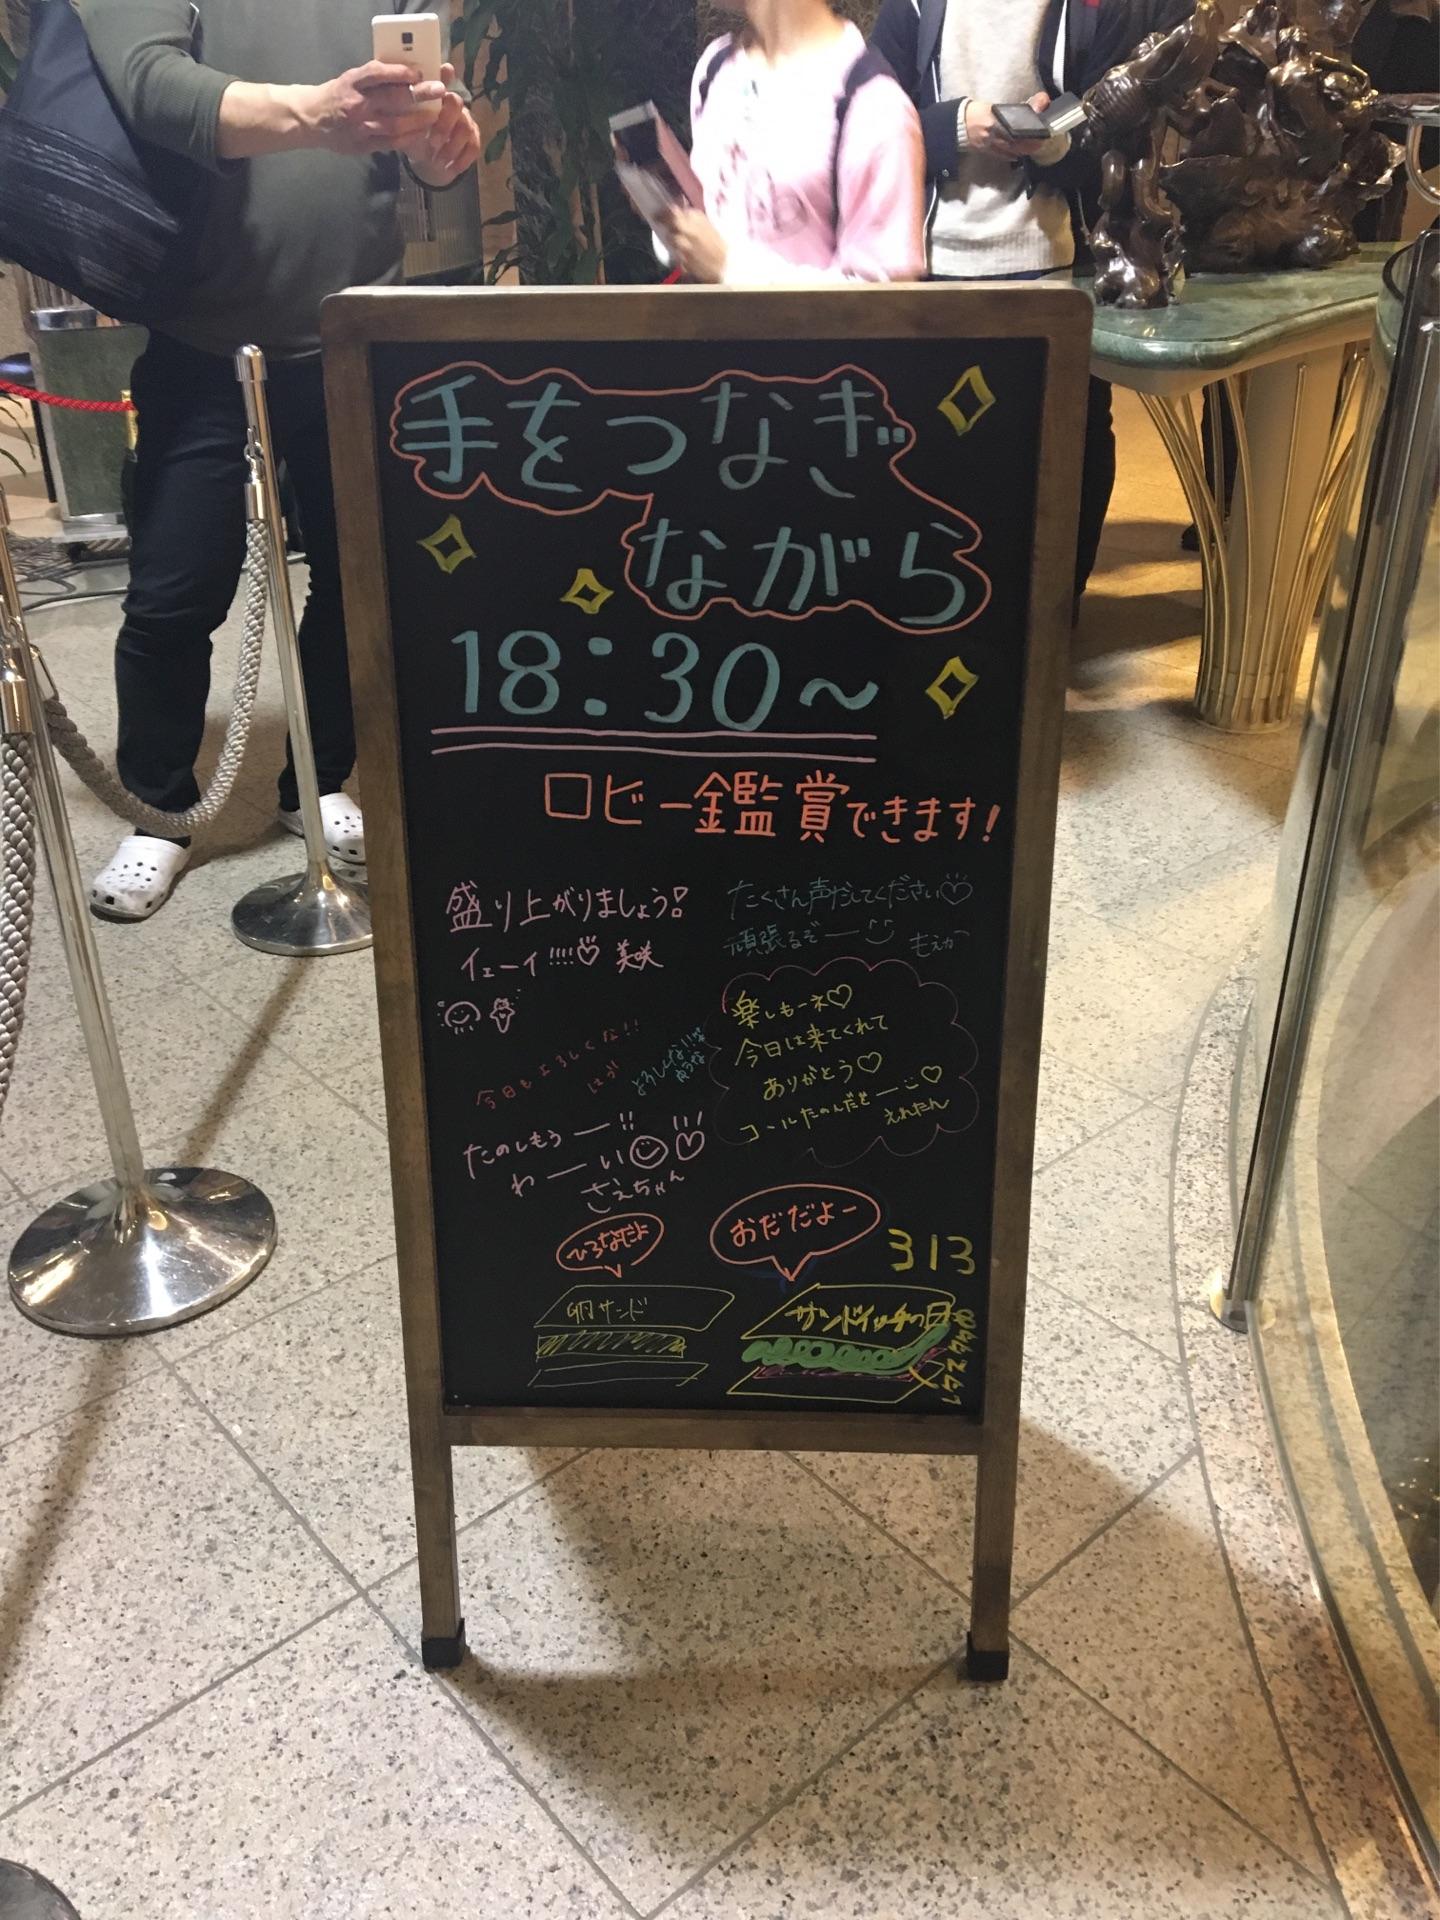 手をつなぎ
ながら
18:30~
ロビー鑑賞できます!
盛り上がりましょう!
イェーイ!!!! 美咲
たくさん声だしてください♡
頑張るぞー もえか
今日もよろしくな!!
よろしくな!!
楽しもーネ♡
今日は来てくれて
ありがとう♡
コールたのんだどー♡
えれたん
たのしもうー!!
わーい
さえちゃん
ひろなだよ
卵サンド
おだだよー
313
サンドイッチの日